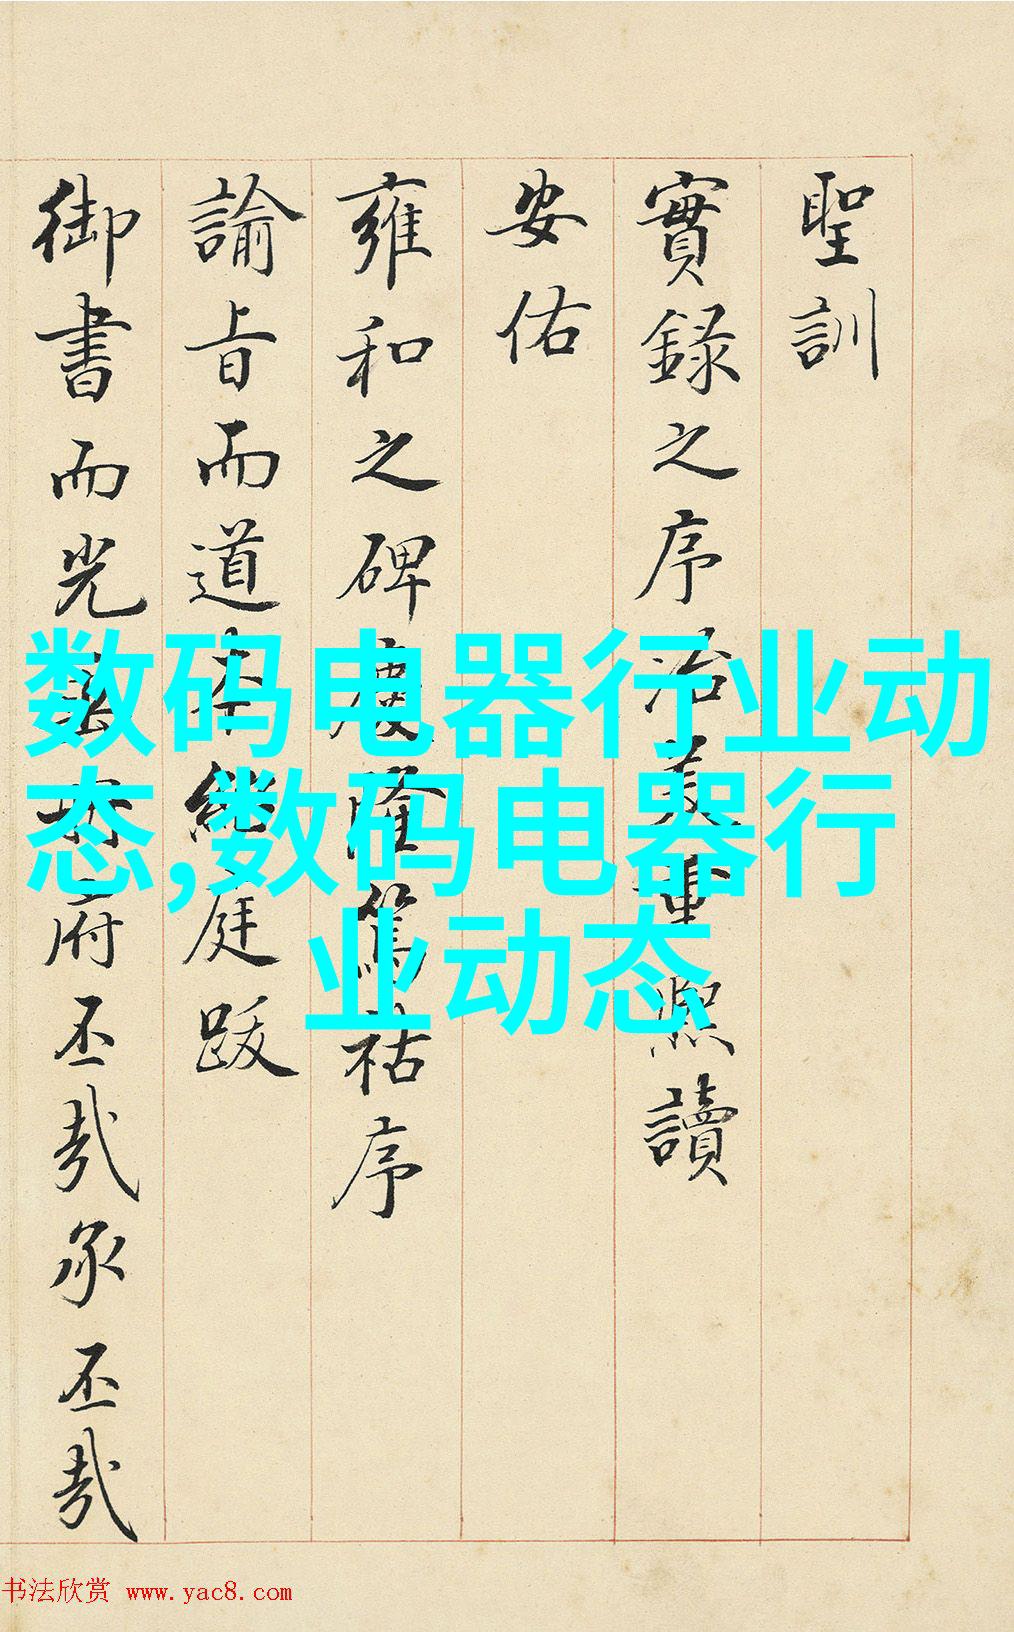 聖訓
實錄之序治美重熙讀
安佑
雍和之碑慶隆篤祜序
諭旨而道本繼庭跋
御書而光府丕哉承丕哉
数码电器行业动
态,数码电器行
业动态
书法欣赏 www.yac8.com